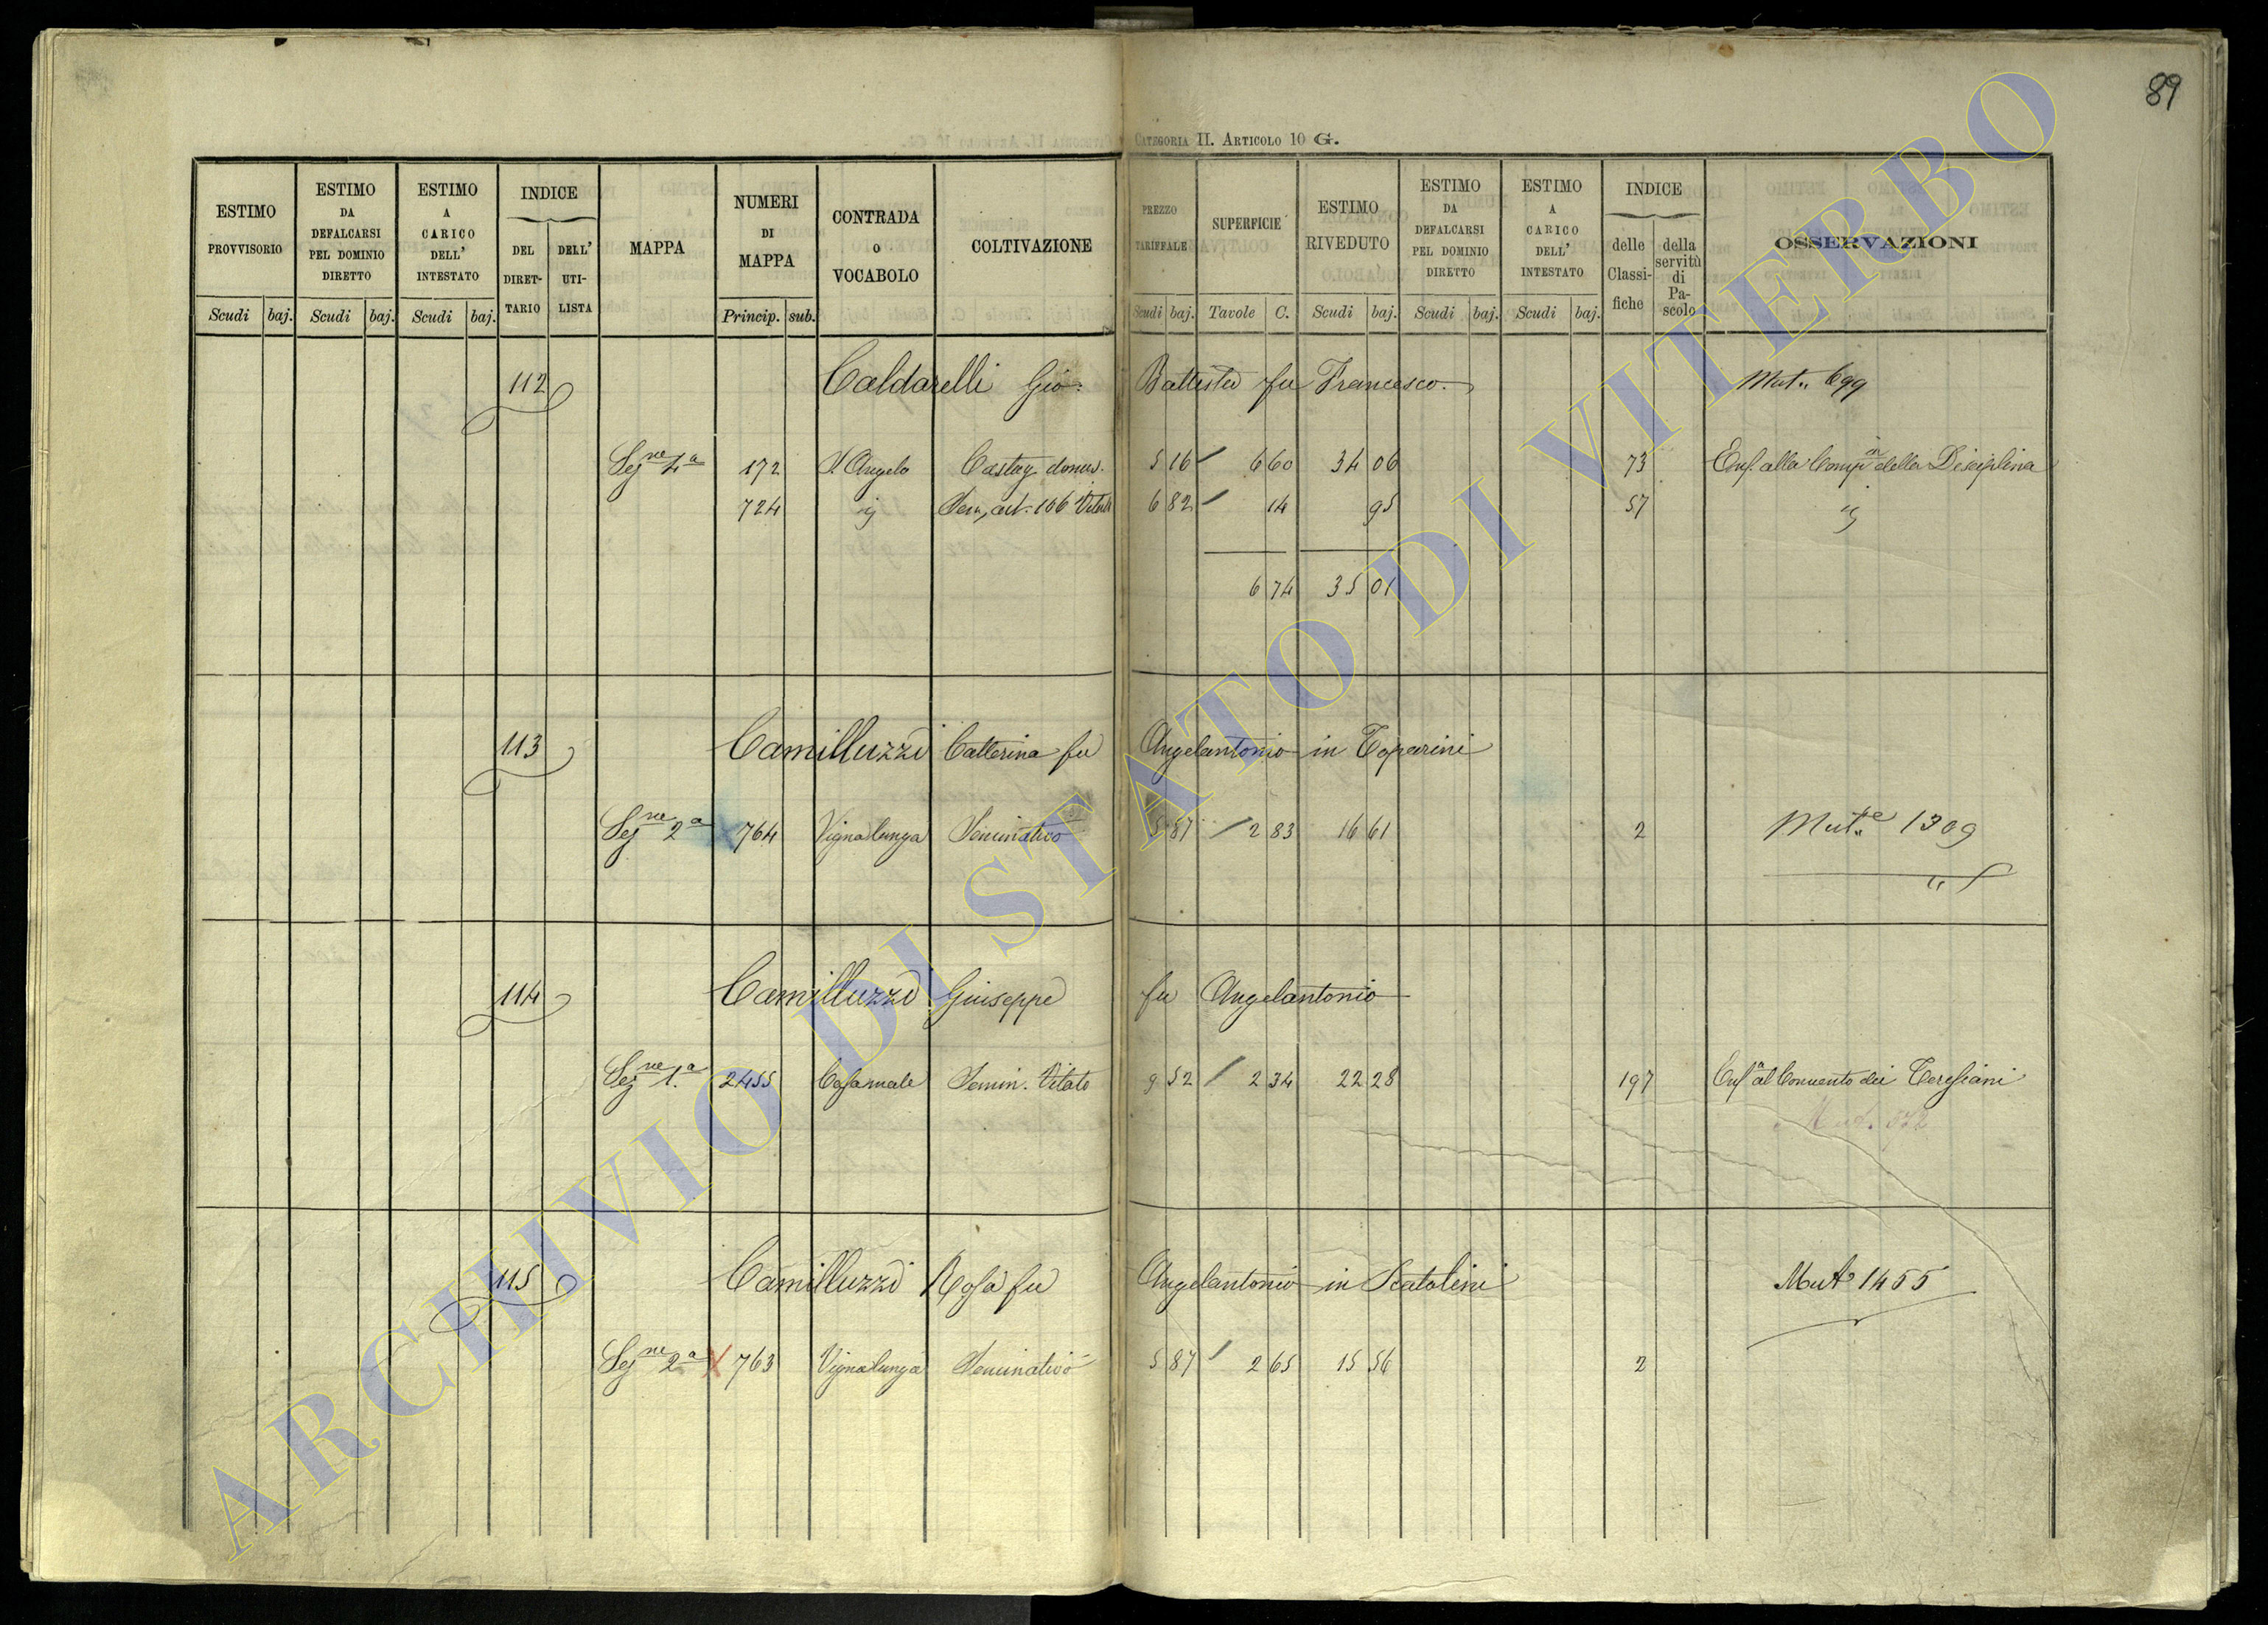 89
CATEGORIA II. ARTICOLO 10 G.
ESTIMO PROVVISORIO Scudi baj.
ESTIMO DA DEFALCARSI PEL DOMINIO DIRETTO Scudi baj.
ESTIMO A CARICO DELL' INTESTATO Scudi baj.
INDICE DEL DIRETTARIO DELL' UTILISTA
MAPPA
NUMERI DI MAPPA Princip. sub.
CONTRADA O VOCABOLO
COLTIVAZIONE
PREZZO TARIFFALE Scudi baj.
SUPERFICIE Tavole C.
ESTIMO RIVEDUTO Scudi baj.
ESTIMO DA DEFALCARSI PEL DOMINIO DIRETTO Scudi baj.
ESTIMO A CARICO DELL' INTESTATO Scudi baj.
INDICE delle Classifiche della servitù di Pascolo
OSSERVAZIONI
112 Caldarelli Gio: Battista fu Francesco. Mut.. 699
Sezne 4a 172 S. Angelo Castag. domes. 5 16 6 60 34 06 73 Enf. alla della Disciplina
724 ij Sem, art. 106 6 82 14 95 57 ij
6 74 35 01
113 Camilluzzi Catterina fu Angelantonio in Toparini
Sezne 2a 764 Vignalunga Seminativo 5 87 2 83 16 61 2 Mut.e 1309
114 Camilluzzi Giuseppe fu Angelantonio
Sezne 1.a 2455 Casamale Semin. Vitato 9 52 2 34 22 28 197 Enf.a al Convento dei Teresiani
115 Camilluzzi Rosa fu Angelantonio in Scatolini Mut.a 1455
Sezne 2a X 763 Vignalunga Seminativo 5 87 2 65 15 56 2
ARCHIVIO DI STATO DI VITERBO